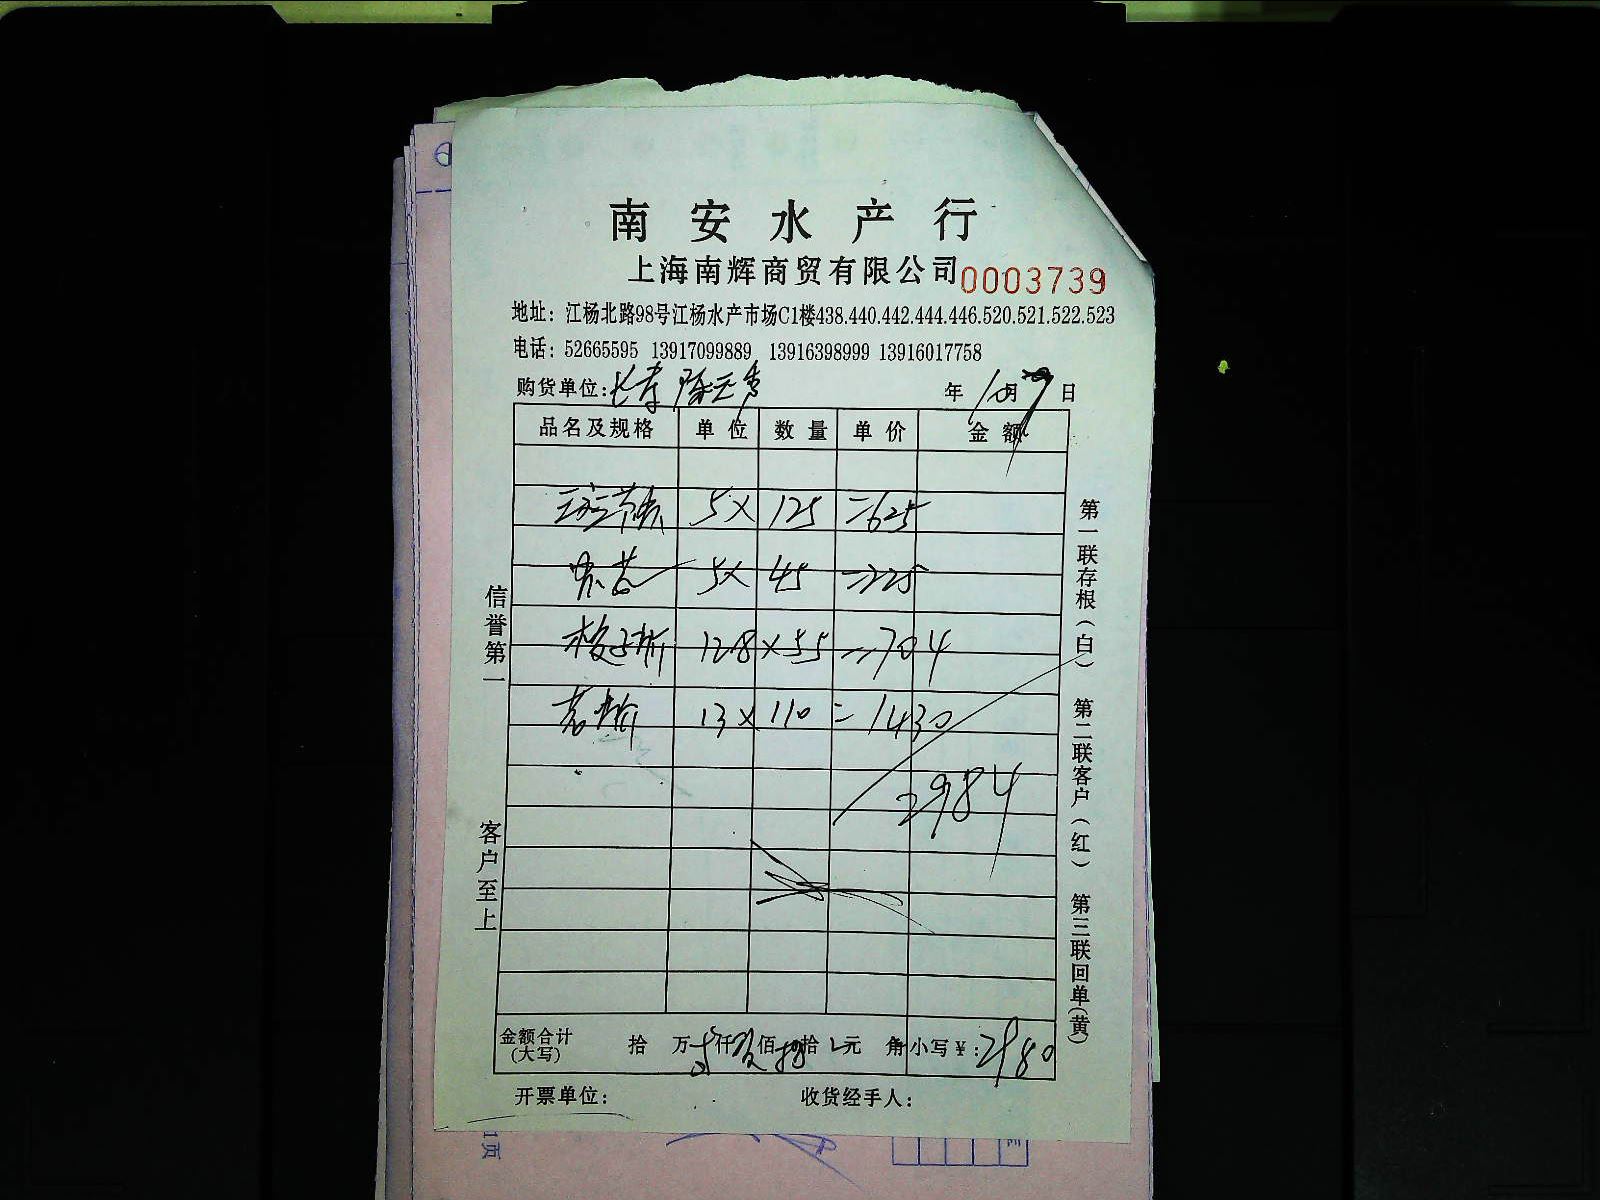 南安水产行
上海南辉商贸有限公司 0003739
地址：江杨北路98号江杨水产市场C1楼438.440.442.444.446.520.521.522.523
电话：52665595 13917099889 13916398999 13916017758
购货单位： 年 10月 日
品名及规格 单位 数量 单价 金额
5× 125 =625
5× 45 =225
128×55 =704
13× 110 =1430
2984
金额合计(大写) 拾 万 仟 佰 拾 元 角 小写￥：2980
开票单位： 收货经手人：
信誉第一
客户至上
第一联存根(白) 第二联客户(红) 第三联回单(黄)